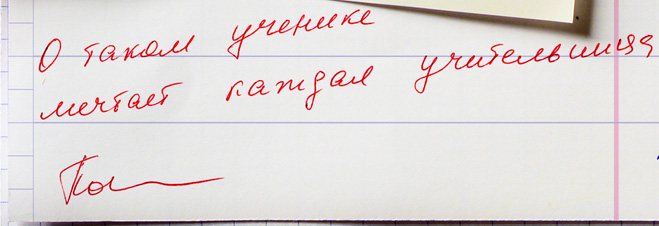 О таком ученике
мечтает каждая учительница